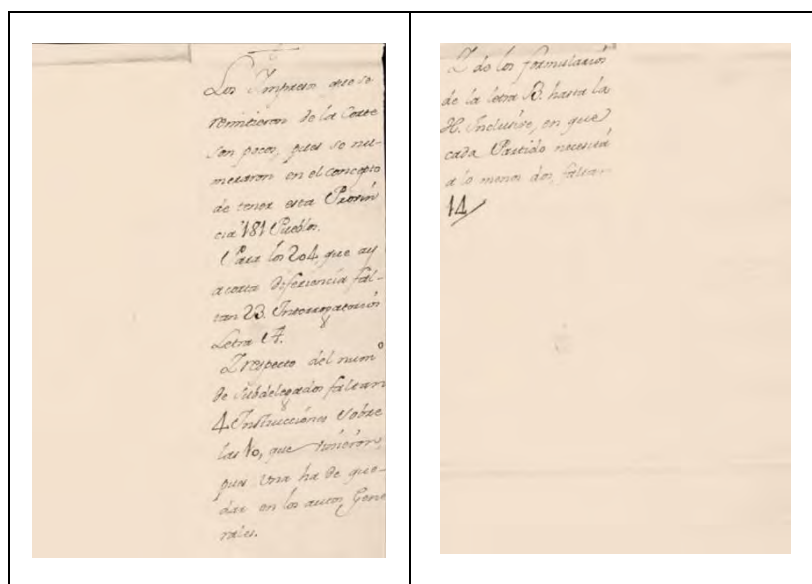 Los Impresos que se
remitieron de la Corte
son pocos, pues se nu-
meraron en el concepto
de tener esta Provin
cia 181 Pueblos.
Para los 204, que ay
a corta diferencia fal-
tan 23. Interrogatorios
Letra A.
Y respecto del numº
de Subdelegados faltan
4 Instrucciones sobre
las 10, que vinieron,
pues una ha de que-
dar en los autos Gene
rales.
Y de los formularios
de la letra B. hasta la
H. Inclusive, en que
cada Partido necesita
a lo menos dos, faltan
14